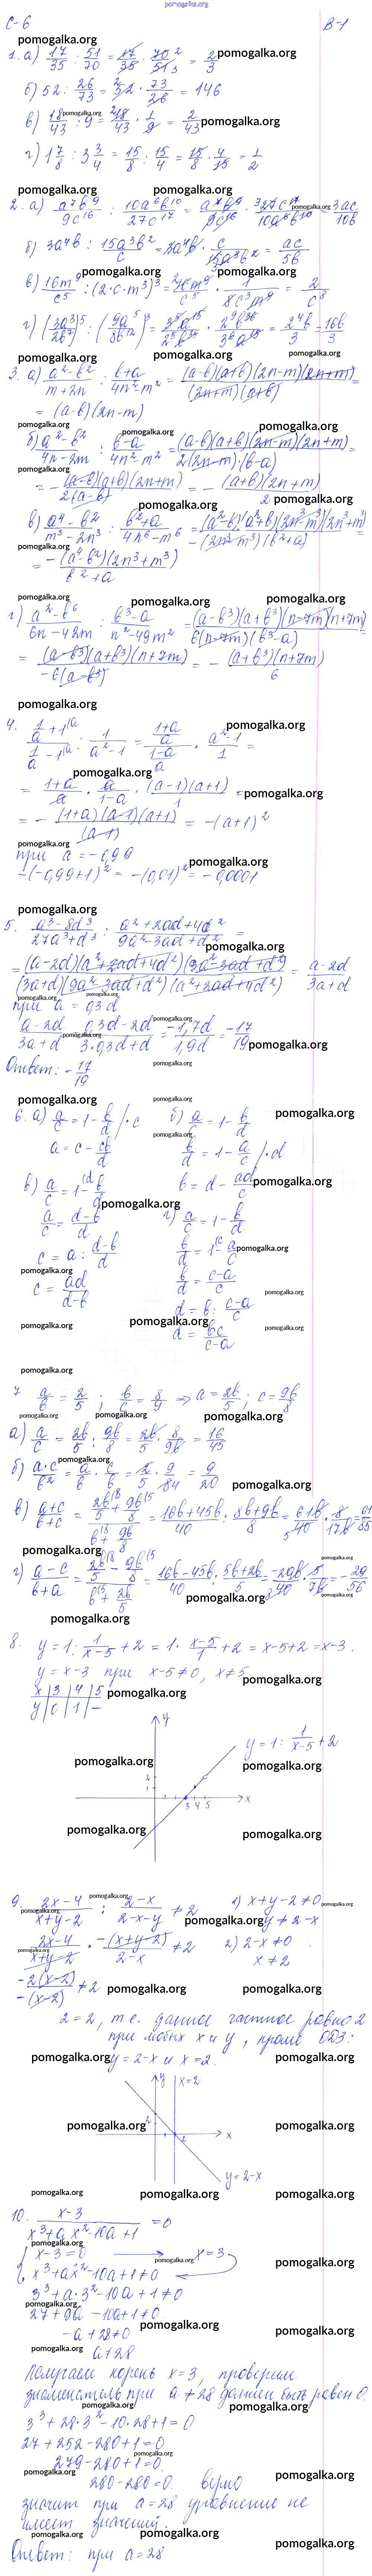 pomogalka.org
С-6 В-1
1. а) 17/35 : 51/70 = 17/35 · 70/51 = 2/3
б) 52 : 26/73 = 52 · 73/26 = 146
в) 18/43 : 9 = 18/43 · 1/9 = 2/43
г) 1 7/8 : 3 3/4 = 15/8 : 15/4 = 15/8 · 4/15 = 1/2
2. а) a⁷b⁹/9c¹⁶ : 10a⁶b¹⁰/27c¹⁷ = a⁷b⁹/9c¹⁶ · 27c¹⁷/10a⁶b¹⁰ = 3ac/10b
б) 3a⁴b : 15a³b²/c = 3a⁴b · c/15a³b² = ac/5b
в) 16m⁹/c⁵ : (2·c·m³)³ = 16m⁹/c⁵ · 1/8c³m⁹ = 2/c⁸
г) (3a³/2b²)⁵ : (9a⁵/3b¹²)³ = 3⁵a¹⁵/2⁵b¹⁰ · 2⁹b³⁶/3⁶a¹⁵ = 2⁴b/3 = 16b/3
3. а) a²-b²/m+2n : b+a/4n²-m² = (a-b)(a+b)(2n-m)(2n+m)/(2n+m)(a+b) =
= (a-b)(2n-m)
б) a²-b²/4n-2m : b-a/4n²-m² = (a-b)(a+b)(2n-m)(2n+m)/2(2n-m)(b-a) =
= -(a-b)(a+b)(2n+m)/2(a-b) = -(a+b)(2n+m)/2
в) a⁴-b²/m³-2n³ : b²+a/4n⁶-m⁶ = (a²-b)(a²+b)(2n³-m³)(2n³+m³)/-(2n³-m³)(b²+a) =
= -(a⁴-b²)(2n³+m³)/b²+a
г) a²-b⁶/6n-42m : b³-a/n²-49m² = (a-b³)(a+b³)(n-7m)(n+7m)/6(n-7m)(b³-a) =
= (a-b³)(a+b³)(n+7m)/-6(a-b³) = -(a+b³)(n+7m)/6
4. 1/a+1/1/a-1 : 1/a²-1 = 1+a/a/1-a/a · a²-1/1 =
= 1+a/a · a/1-a · (a-1)(a+1)/1 =
= -(1+a)(a-1)(a+1)/(a-1) = -(a+1)²
при a = -0,99
-(-0,99+1)² = -(0,01)² = -0,0001
5. a³-8d³/27a³+d³ : a²+2ad+4d²/9a²-3ad+d² =
= (a-2d)(a²+2ad+4d²)(9a²-3ad+d²)/(3a+d)(9a²-3ad+d²)(a²+2ad+4d²) = a-2d/3a+d
при a = 0,3d
a-2d/3a+d = 0,3d-2d/3·0,3d+d = -1,7d/1,9d = -17/19
Ответ: -17/19
6. а) a/c = 1 - b/d /·c б) a/c = 1 - b/d
a = c - cb/d b/d = 1 - a/c /·d
в) a/c = 1 - b/d b = d - ad/c
a/c = d-b/d г) a/c = 1 - b/d
c = a : d-b/d b/d = 1 - a/c
c = ad/d-b b/d = c-a/c
d = b : c-a/c
d = bc/c-a
7. a/b = 2/5 ; b/c = 8/9 ⇒ a = 2b/5 ; c = 9b/8
а) a/c = 2b/5 : 9b/8 = 2b/5 · 8/9b = 16/45
б) a·c/b² = a/b · c/b = 2/5 · 9/84 = 9/20
в) a+c/b+c = 2b/5 + 9b/8 / b + 9b/8 = 16b+45b/40 : 8b+9b/8 = 61b/40 · 8/17b = 61/85
г) a-c/b+a = 2b/5 - 9b/8 / b + 2b/5 = 16b-45b/40 : 5b+2b/5 = -29b/40 · 5/7b = -29/56
8. y = 1 : 1/x-5 + 2 = 1 · x-5/1 + 2 = x-5+2 = x-3.
y = x-3 при x-5≠0, x≠5
x|3|4|5
y|0|1|-
y = 1 : 1/x-5 + 2
9. 2x-4/x+y-2 : 2-x/2-x-y ≠ 2 1) x+y-2≠0
y≠2-x
2x-4/x+y-2 · -(x+y-2)/2-x ≠ 2 2) 2-x≠0
x≠2
-2(x-2)/-(x-2) ≠ 2
2 = 2, т.е. данное частное равно 2
при любых x и y, кроме ОДЗ:
y = 2-x и x = 2.
y x=2
x
y=2-x
10. x-3/x³+ax²-10a+1 = 0
x-3=0 → x=3
x³+ax²-10a+1≠0
3³+a·3²-10a+1≠0
27+9a-10a+1≠0
-a+28≠0
a≠28
Получаем корень x=3, проверим
знаменатель при a≠28 должен быть равен 0.
3³+28·3²-10·28+1=0
27+252-280+1=0
279-280+1=0
280-280=0. верно
значит при a=28 уравнение не
имеет значений.
Ответ: при a=28